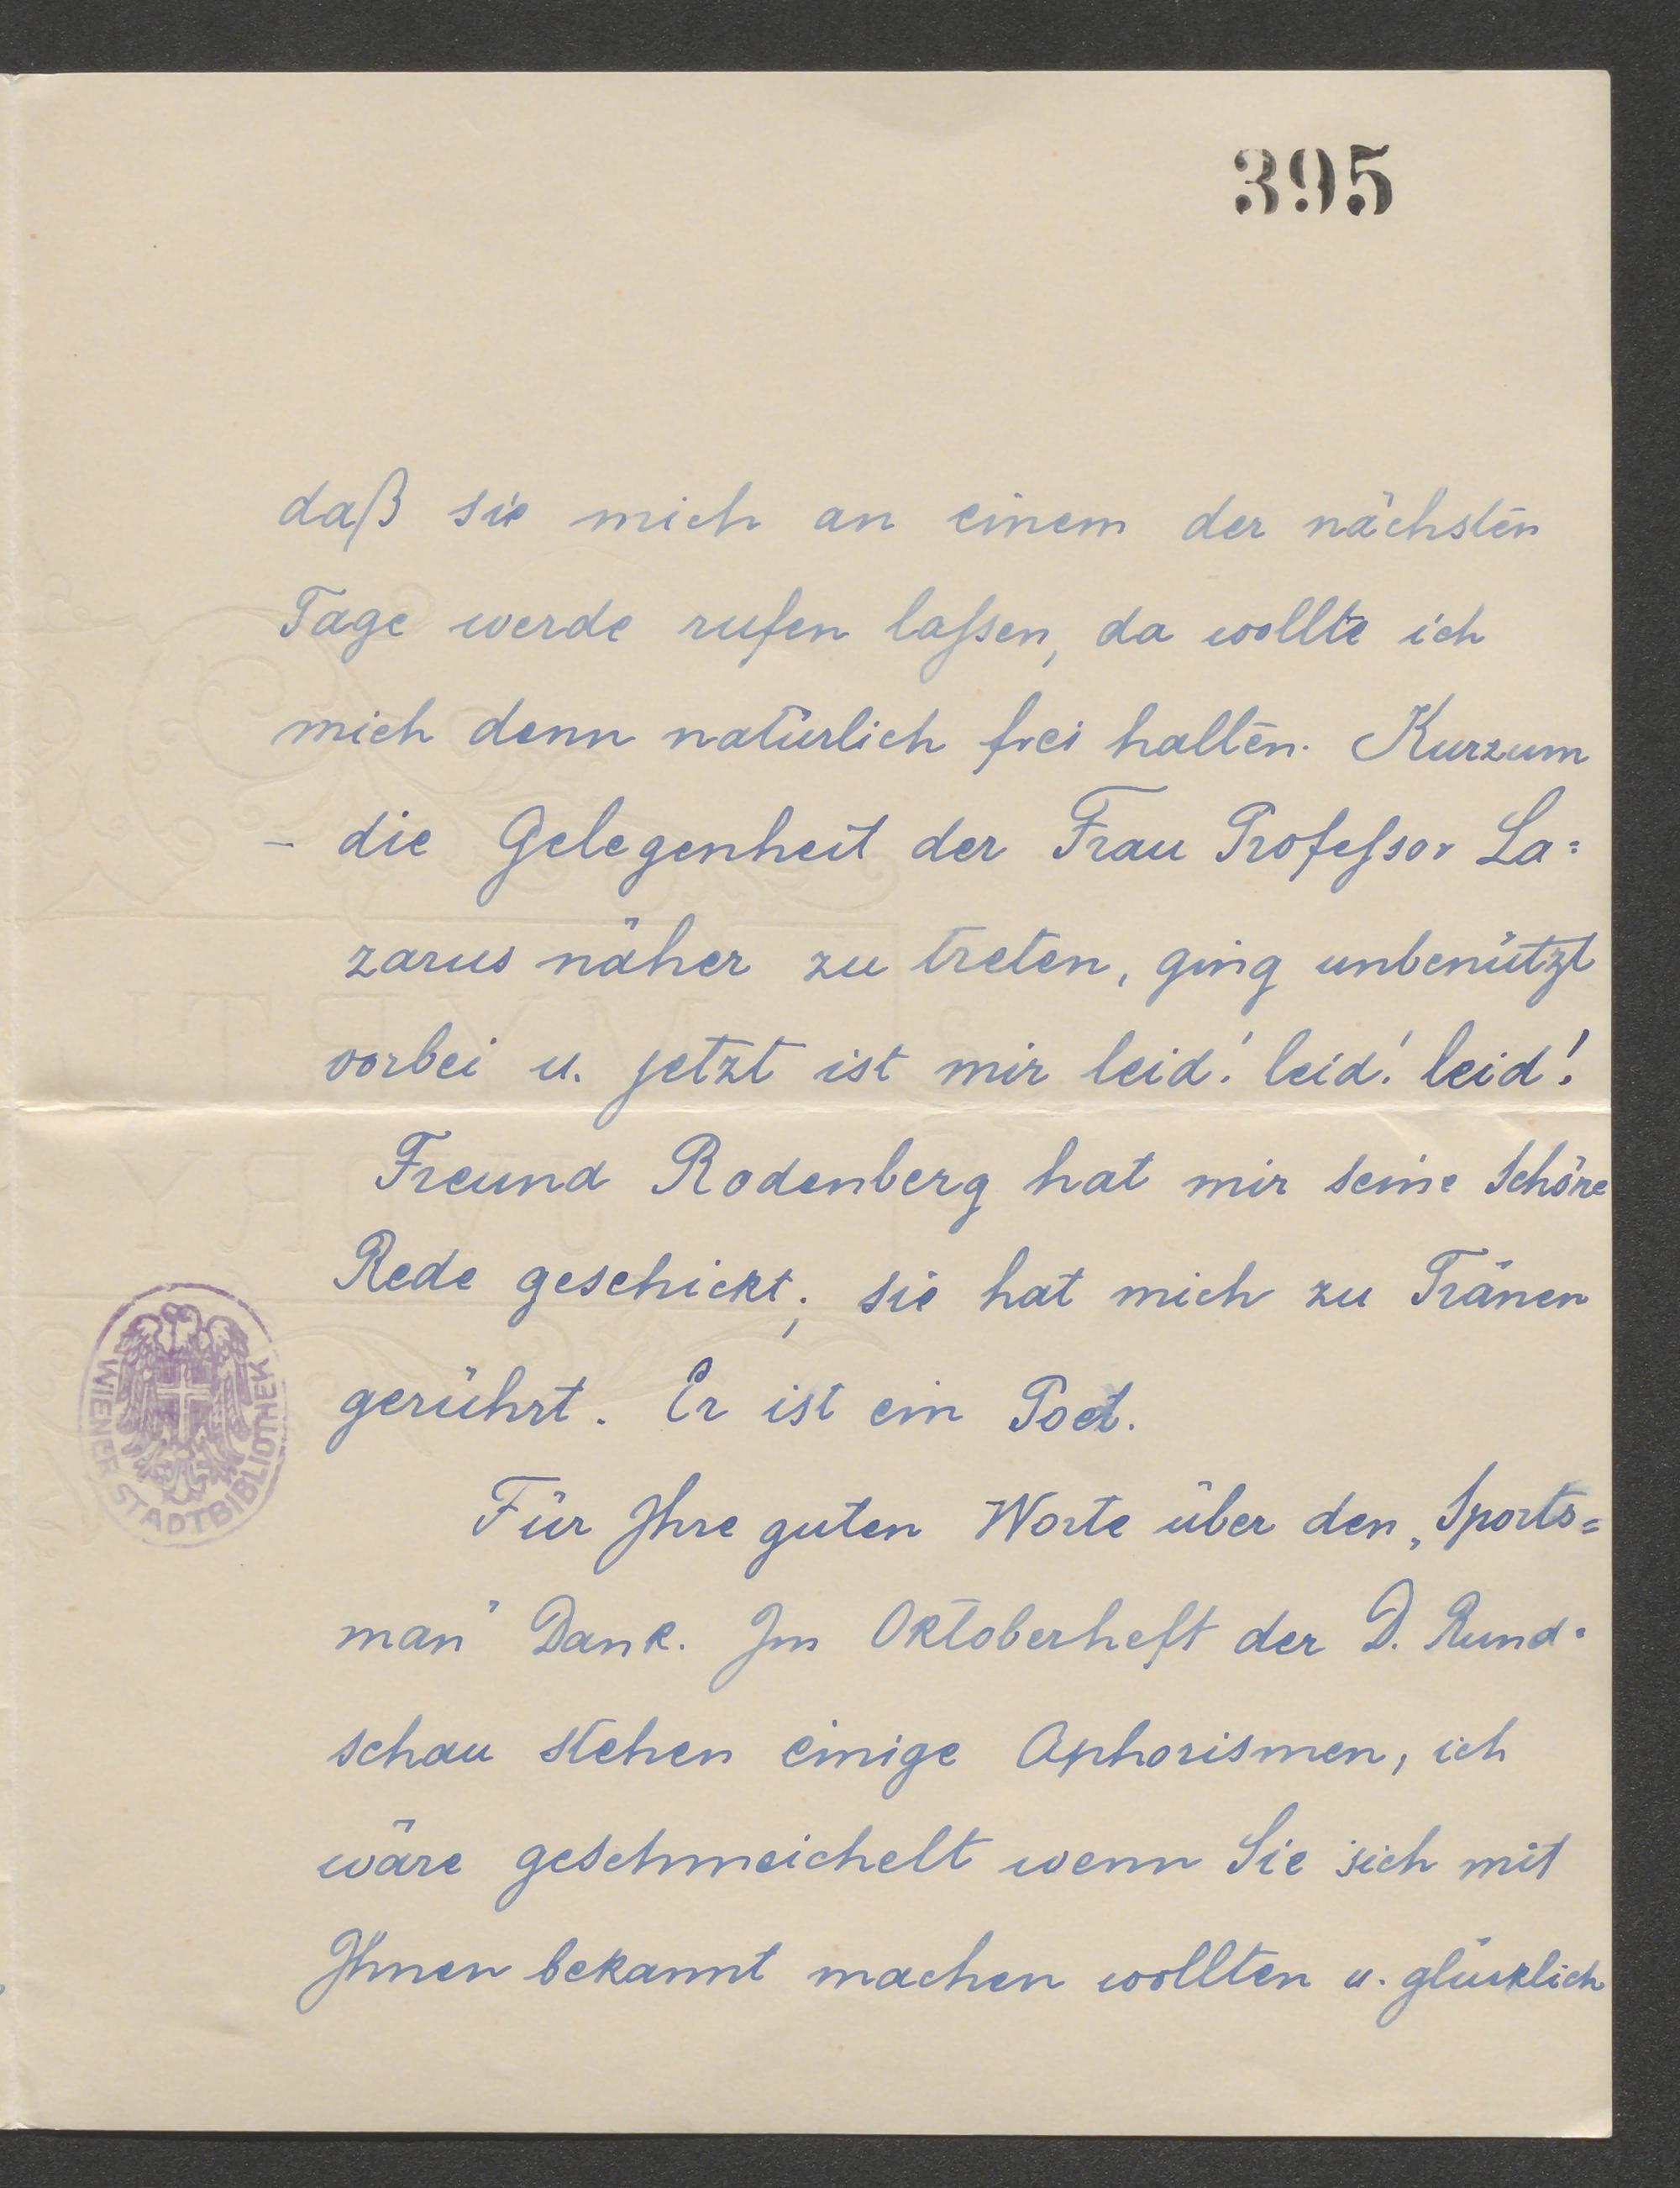 395
daß sie mich an einem der nächsten
Tage werde rufen lassen, da wollte ich
mich denn natürlich frei halten. Kurzum
– die Gelegenheit der Frau Professor La=
zarus näher zu treten, ging unbenützt
vorbei u. jetzt ist mir leid! leid! leid!
Freund Rodenberg hat mir seine schöne
Rede geschickt; sie hat mich zu Tränen
gerührt. Er ist ein Poet.
Für Ihre guten Worte über den „Sports=
man" Dank. Im Oktoberheft der D. Rund=
schau stehen einige Aphorismen, ich
wäre geschmeichelt wenn Sie sich mit
Ihnen bekannt machen wollten u. glücklich
WIENER STADTBIBLIOTHEK